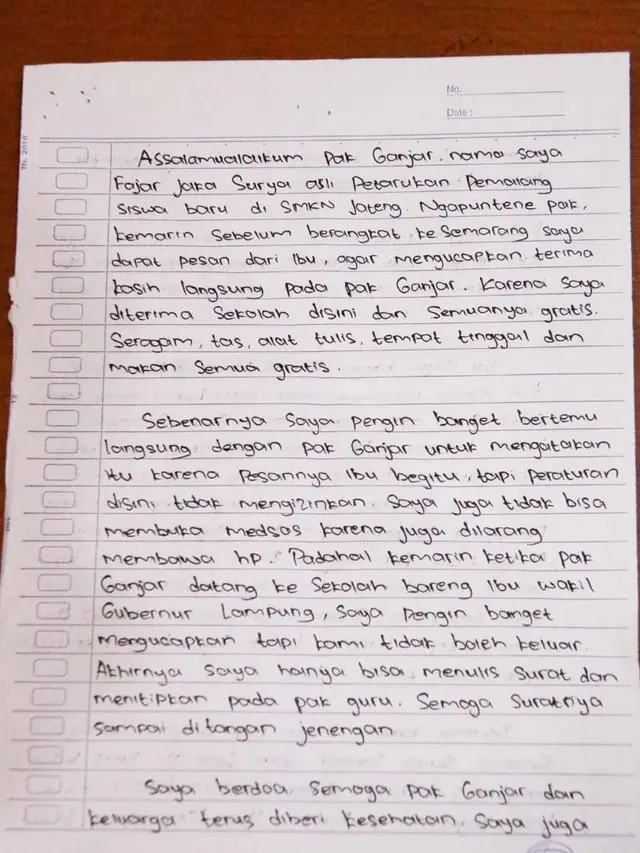 No.
Date :
Assalamualaikum pak Ganjar. nama saya
Fajar Jaka Surya asli Petarukan Pemalang
siswa baru di SMKN Jateng. Ngapuntene pak,
kemarin sebelum berangkat ke Semarang saya
dapat pesan dari Ibu, agar mengucapkan terima
kasih langsung pada pak Ganjar. Karena saya
diterima Sekolah disini dan Semuanya gratis.
Seragam, tas, alat tulis, tempat tinggal dan
makan semua gratis.
Sebenarnya saya pengin banget bertemu
langsung dengan pak Ganjar untuk mengatakan
itu karena pesannya Ibu begitu, tapi peraturan
disini tidak mengizinkan. Saya juga tidak bisa
membuka medsos karena juga dilarang
membawa hp. Padahal kemarin ketika pak
Ganjar datang ke Sekolah bareng Ibu wakil
Gubernur Lampung, saya pengin banget
mengucapkan tapi kami tidak boleh keluar.
Akhirnya saya hanya bisa menulis surat dan
menitipkan pada pak guru. Semoga Suratnya
sampai di tangan jenengan.
Saya berdoa semoga pak Ganjar dan
keluarga terus diberi kesehatan. Saya juga